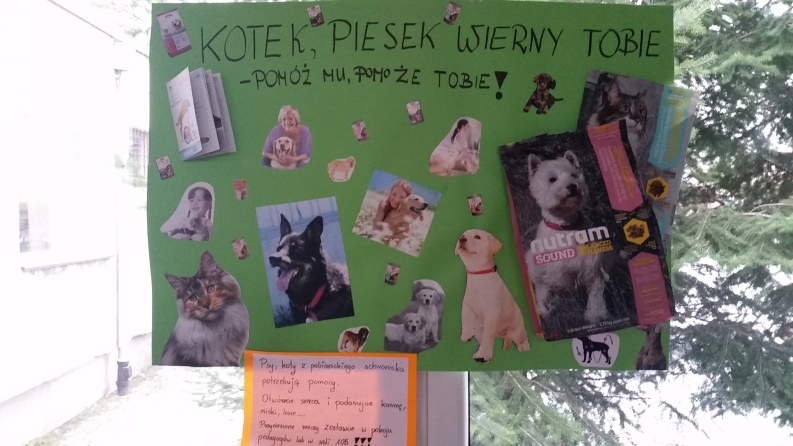 KOTEK, PIESEK WIERNY TOBIE
-POMÓŻ MU, POMOŻE TOBIE!
nutram
SOUND BALANCED WELLNESS
Psy, koty z pabianickiego schroniska
potrzebują pomocy.
Otwórzcie serca i podarujcie karmę,
miski, koce...
Przyniesione rzeczy zostawcie w pokoju
pedagogów lub w sali 106 !!!